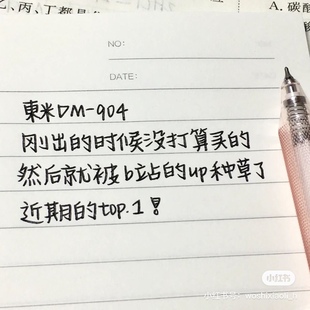 、丙、丁都是
A.碳酸
NO:
DATE:
東米DM-904
刚出的时候没打算买的
然后就被b站的up种草了
近期的top.1!
小红书